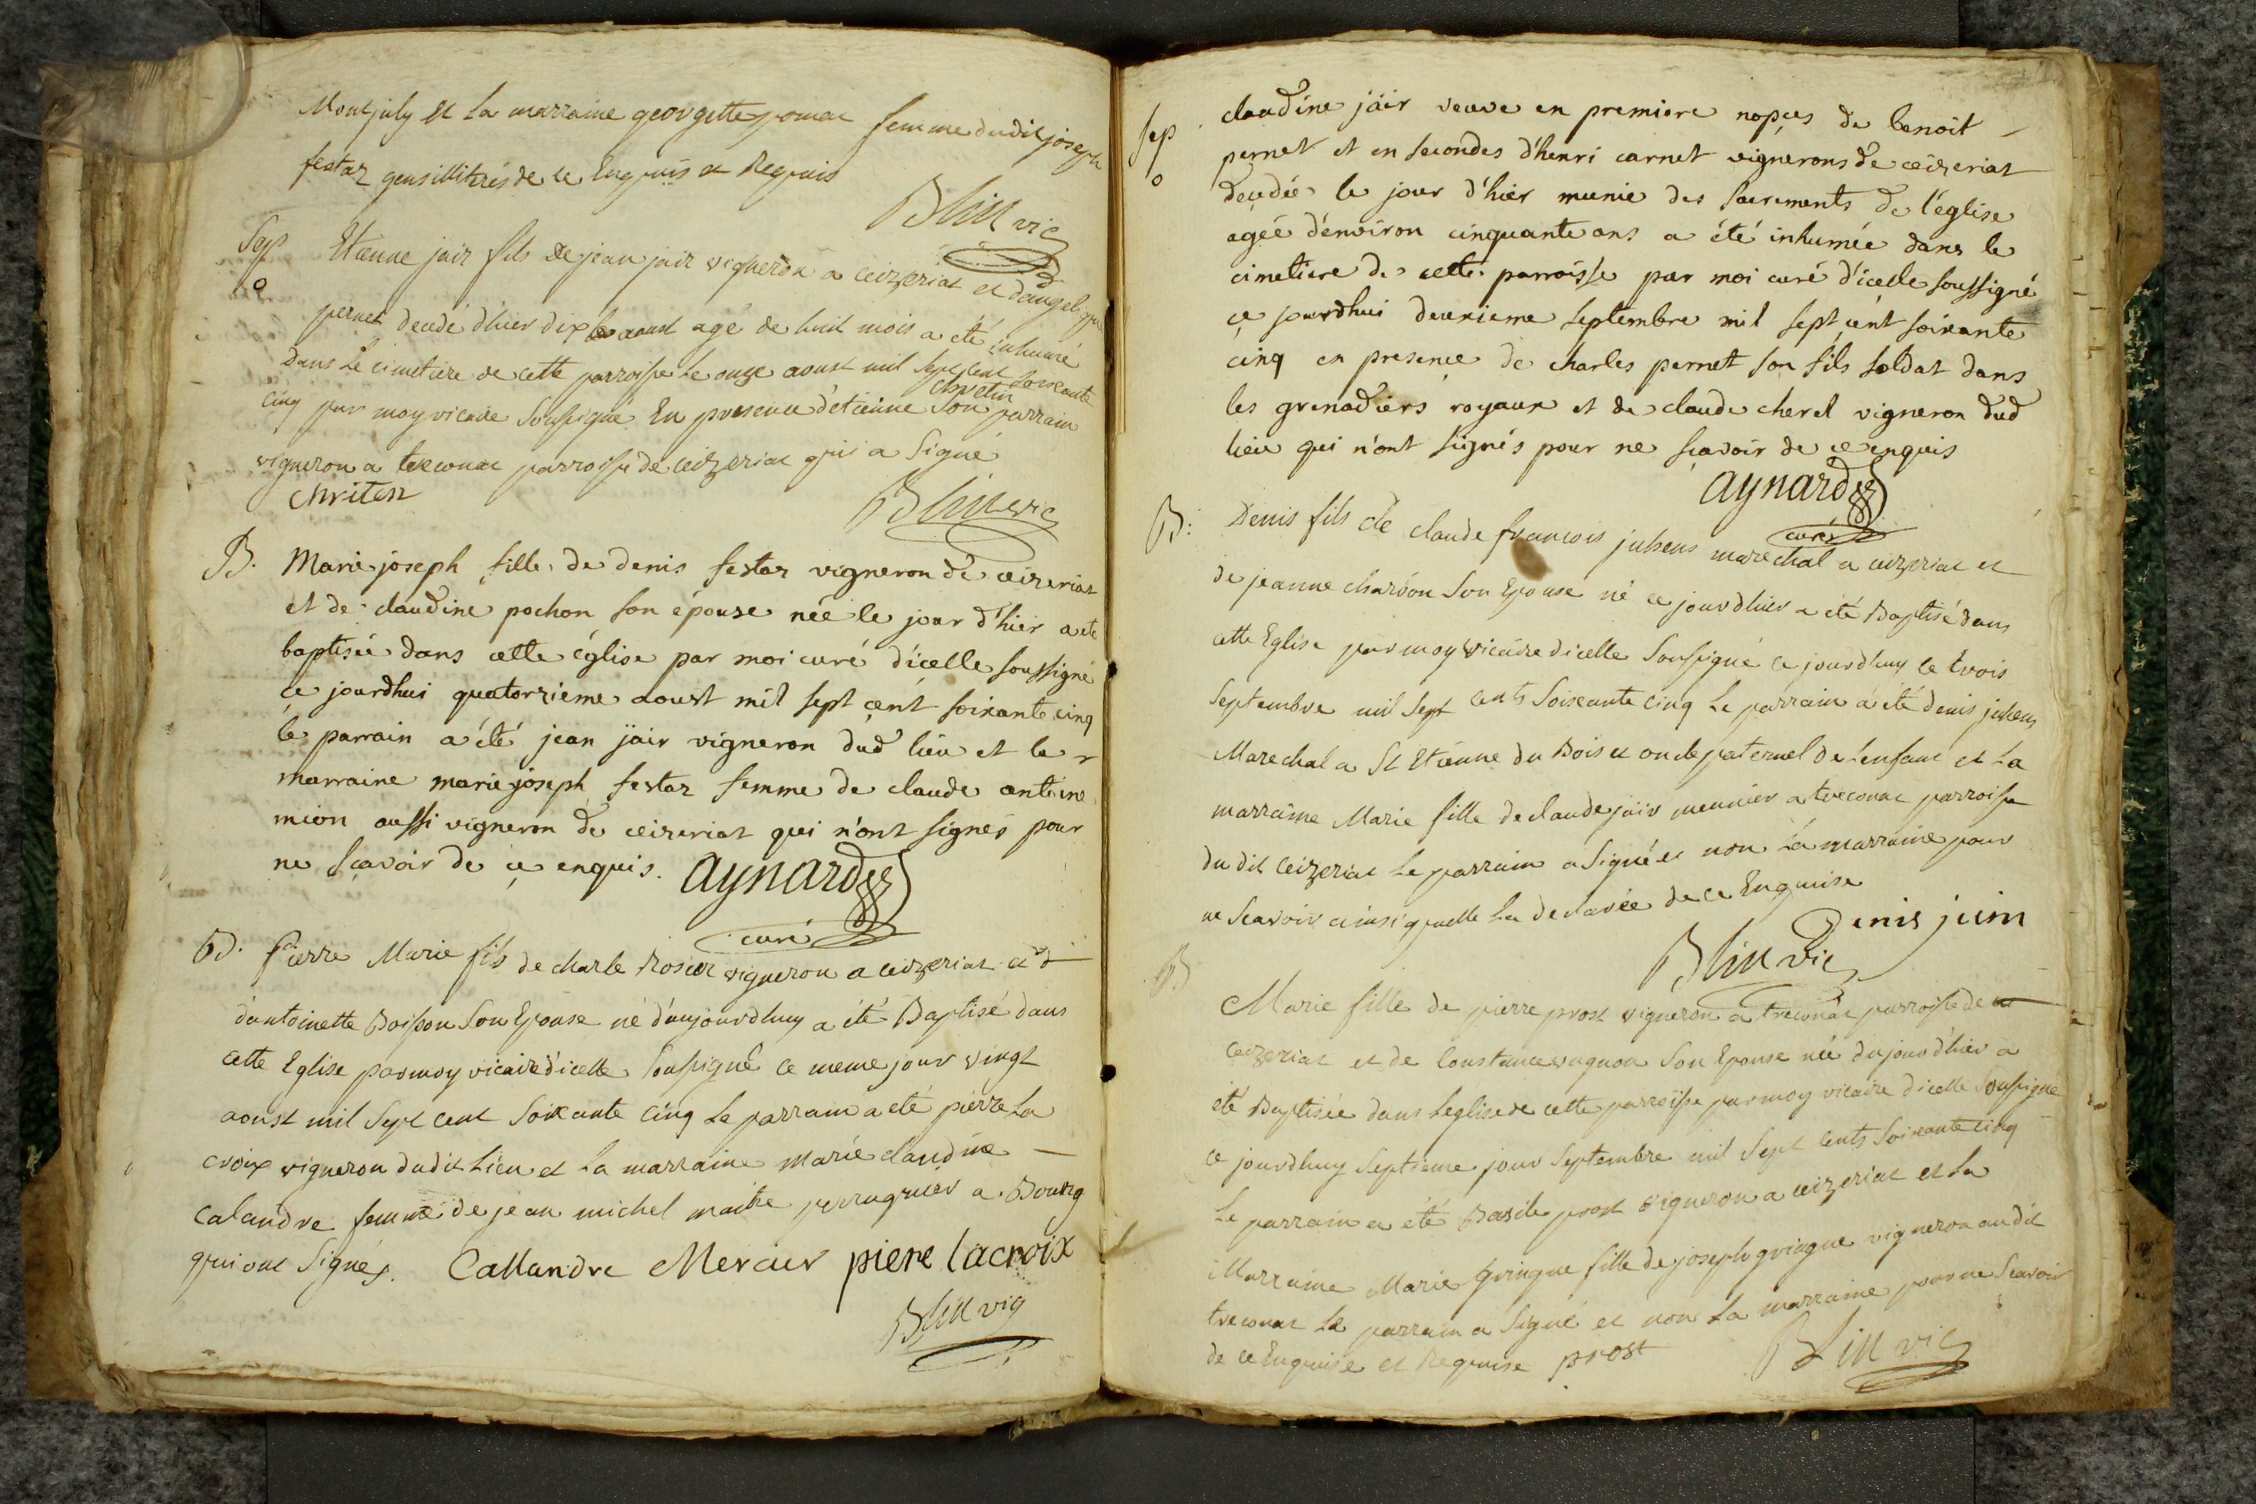 Montjuly et la marraine georgette pomat femme dudit joseph
festaz gens illitérés de ce Enquis et Requis
Blin vic
Sep Etienne jair fils de jean jair vigneron a ceizeriat et d'angelique
o
pernet decedé d'hier dix aoust agé de huit mois a été inhumé
dans le cimetiere de cette parroisse le onze aoust mil sept cent soixante
cinq par moy vicaire soussigné En presence d'etienne chretin son parrain
vigneron a treconat parroisse de ceizeriat qui a signé
chriten
Blin vic
B. Marie joseph fille de denis festaz vigneron de ceizeriat
et de claudine pochon son épouse née le jour d'hier a eté
baptisée dans cette église par moi curé d'icelle soussigné
ce jourdhui quatorzieme aoust mil sept cent soixante cinq
le parrain a été jean jäir vigneron dud lieu et la
marraine marie joseph festaz femme de claude antoine
mion aussi vigneron de ceizeriat qui n'ont signés pour
ne scavoir de ce enquis. aynard
curé
B. Pierre Marie fils de charle Rosier vigneron a ceizeriat et
d'antoinette Boisson son Epouse né d'aujourdhuy a été Baptisé dans
cette Eglise par moy vicaire d'icelle soussigné ce meme jour vingt
aoust mil Sept cent Soixante cinq Le parrain a eté pierre La
croix vigneron dudit Lieu et La marraine marie claudine
calandre femme de jean michel maitre perruquier a Bourg
qui ont Signés. Callandre Mercier piere lacroix
Blin vic
sep claudine jäir veuve en premiere nopces de benoit
o
pernet et en secondes d'henri carnet vignerons de ceizeriat
decedée le jour d'hier munie des sacrements de l'église
agéé d'environ cinquante ans a été inhumée dans le
cimetiere de cette parroisse par moi curé d'icelle soussigné
ce jourdhui deuxieme septembre mil sept cent soixante
cinq en presence de charles pernet son fils soldat dans
les grenadiers royaux et de claude cherel vigneron dud
lieu qui n'ont signés pour ne scavoir de ce enquis
aynard
curé
B: Denis fils de claude francois juhens marechal a ceizeriat et
de jeanne charbon son Epouse né ce jourdhier a été Baptisé dans
cette Eglise par moy vicaire d'icelle soussigné ce jourdhuy le trois
septembre mil sept cents soixante cinq le parrain a été denis juhens
Marechal a St Etienne du Bois et oncle paternel de l'enfant et la
marraine Marie fille de claude jair meunier a treconat parroisse
du dit ceizeriat le parrain a signé et non la marraine pour
ne scavoir ainsi quelle la declarée de ce Enquise
Denis juin
Blin vic
B Marie fille de pierre prost vigneron a treconat parroisse de
ceizeriat et de Constance vugnon son Epouse née du jourdhier a
été Baptisée dans Leglise de cette parroisse par moy vicaire dicelle soussigné
ce jourdhuy septieme jour septembre mil sept cents soixante cinq
Le parrain a été Basile prost vigneron a ceizeriat et la
Marraine Marie gringue fille de joseph gringue vigneron audit
treconat le parrain a signé et non la marraine pour ne scavoir
de ce Enquise et Requise prost
Blin vic